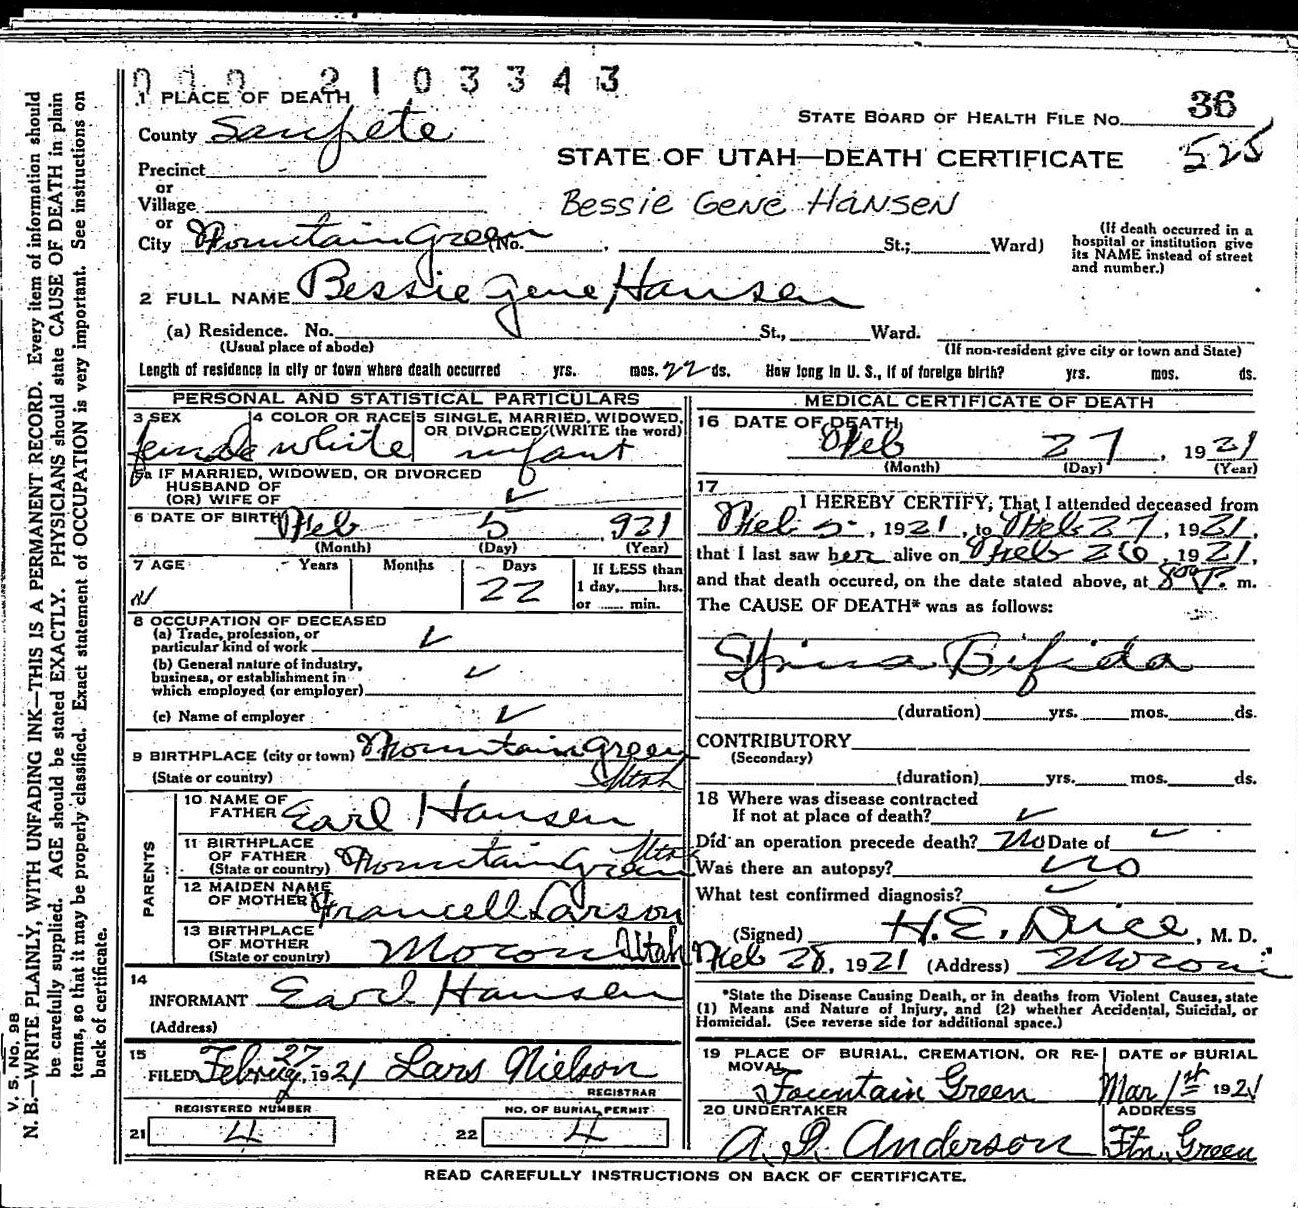 2103343
1 PLACE OF DEATH
County Sanpete
STATE BOARD OF HEALTH FILE NO. 36
525
STATE OF UTAH—DEATH CERTIFICATE
Precinct
or
Village
Bessie Gene Hansen
or
City Fountain Green (No. , St.; Ward)
(If death occurred in a hospital or institution give its NAME instead of street and number.)
2 FULL NAME Bessie Gene Hansen
(a) Residence. No. St., Ward.
(Usual place of abode) (If non-resident give city or town and State)
Length of residence in city or town where death occurred yrs. mos. 22 ds. How long in U. S., if of foreign birth? yrs. mos. ds.
PERSONAL AND STATISTICAL PARTICULARS
3 SEX female
4 COLOR OR RACE white
5 SINGLE, MARRIED, WIDOWED, OR DIVORCED (WRITE the word) infant
5a IF MARRIED, WIDOWED, OR DIVORCED
HUSBAND OF
(OR) WIFE OF ✓
6 DATE OF BIRTH Feb 5, 921
(Month) (Day) (Year)
7 AGE Years Months Days 22
If LESS than
1 day, hrs.
or min.
8 OCCUPATION OF DECEASED
(a) Trade, profession, or
particular kind of work ✓
(b) General nature of industry,
business, or establishment in
which employed (or employer) ✓
(c) Name of employer ✓
9 BIRTHPLACE (city or town) Fountain Green
(State or country) Utah
PARENTS
10 NAME OF
FATHER Earl Hansen
11 BIRTHPLACE
OF FATHER
(State or country) Fountain Green Utah
12 MAIDEN NAME
OF MOTHER Francell Larson
13 BIRTHPLACE
OF MOTHER
(State or country) Moroni Utah
14
INFORMANT Earl Hansen
(Address)
15
FILED Febriug 27, 1921 Lars Nielson
REGISTRAR
REGISTERED NUMBER
21 4
NO. OF BURIAL PERMIT
22 4
MEDICAL CERTIFICATE OF DEATH
16 DATE OF DEATH
Feb 27, 1921
(Month) (Day) (Year)
17
I HEREBY CERTIFY, That I attended deceased from
Feb 5, 1921, to Feb 27, 1921,
that I last saw her alive on Feb 26, 1921,
and that death occured, on the date stated above, at 8 00 P. m.
The CAUSE OF DEATH* was as follows:
Spina Bifida
(duration) yrs. mos. ds.
CONTRIBUTORY
(Secondary)
(duration) yrs. mos. ds.
18 Where was disease contracted
If not at place of death? ✓
Did an operation precede death? No Date of ✓
Was there an autopsy? No
What test confirmed diagnosis? ✓
(Signed) H. E. Dice, M. D.
Feb 28, 1921 (Address) Moroni
*State the Disease Causing Death, or in deaths from Violent Causes, state
(1) Means and Nature of Injury, and (2) whether Accidental, Suicidal, or
Homicidal. (See reverse side for additional space.)
19 PLACE OF BURIAL, CREMATION, OR RE-
MOVAL
Fountain Green
DATE OF BURIAL
Mar 1st 1921
20 UNDERTAKER
A. J. Anderson
ADDRESS
Ftn. Green
READ CAREFULLY INSTRUCTIONS ON BACK OF CERTIFICATE.
V. S. No. 98
N. B.—WRITE PLAINLY, WITH UNFADING INK—THIS IS A PERMANENT RECORD. Every item of information should
be carefully supplied. AGE should be stated EXACTLY. PHYSICIANS should state CAUSE OF DEATH in plain
terms, so that it may be properly classified. Exact statement of OCCUPATION is very important. See instructions on
back of certificate.